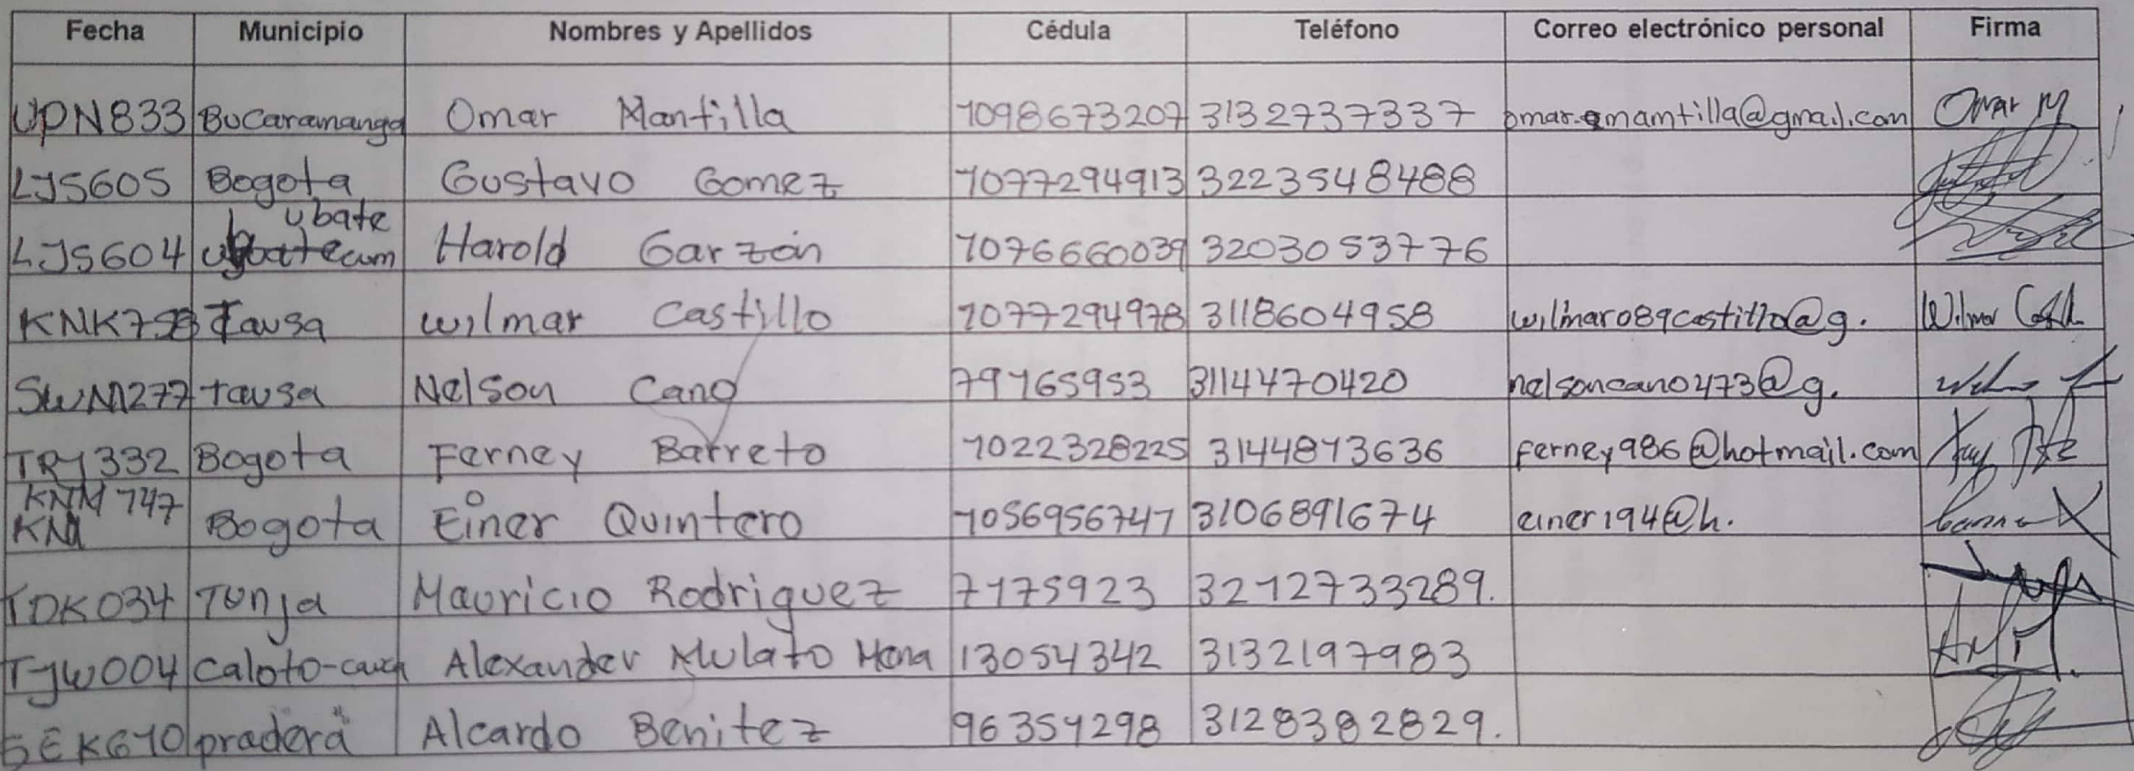 Fecha Municipio Nombres y Apellidos Cédula Teléfono Correo electrónico personal Firma
UPN833 Bucaramanga Omar Mantilla 1098673207 3132737337 omar.emamtilla@gmail.com Omar M
LJS605 Bogota Gustavo Gomez 1077294913 3223548488
ubate
LJS604 cum Harold Garzón 1076660039 3203053776
Tausa Wilmar Castillo 1077294978 3118604958 wilmar089castillo@g. Wilmar
SWM277 tausa Nelson Cano 79165953 3114470420 nelsoncano473@g.
TRJ332 Bogota Ferney Barreto 1022328225 3144813636 ferney986@hotmail.com
KNM 747
KNM Bogota Einer Quintero 1056956747 3106891674 einer194@h.
TDK034 Tunja Mauricio Rodriguez 7175923 3212733289.
TJW004 Caloto-cauca Alexander Mulato Mena 13054342 3132197983
SEK610 pradera Alcardo Benitez 96354298 3128382829.